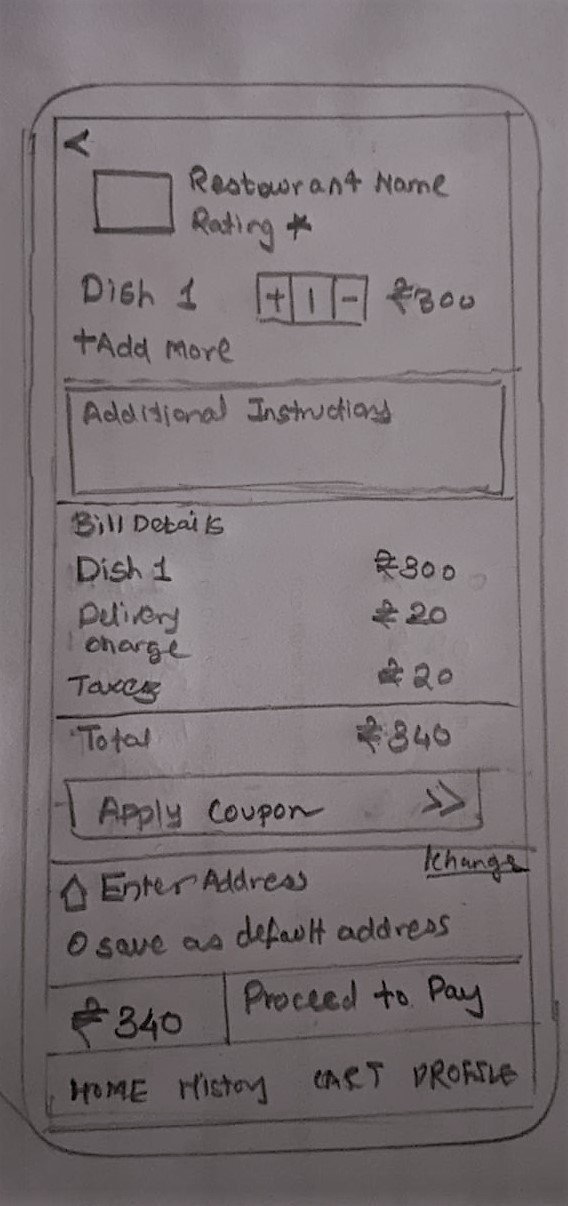 <
Restaurant Name
Rating *
Dish 1 + 1 - ₹300
+Add More
Additional Instructions
Bill Details
Dish 1 ₹300
Delivery ₹20
charge
Taxes ₹20
Total ₹340
Apply Coupon >>
Change
Enter Address
save as default address
₹340 Proceed to Pay
HOME History CART PROFILE